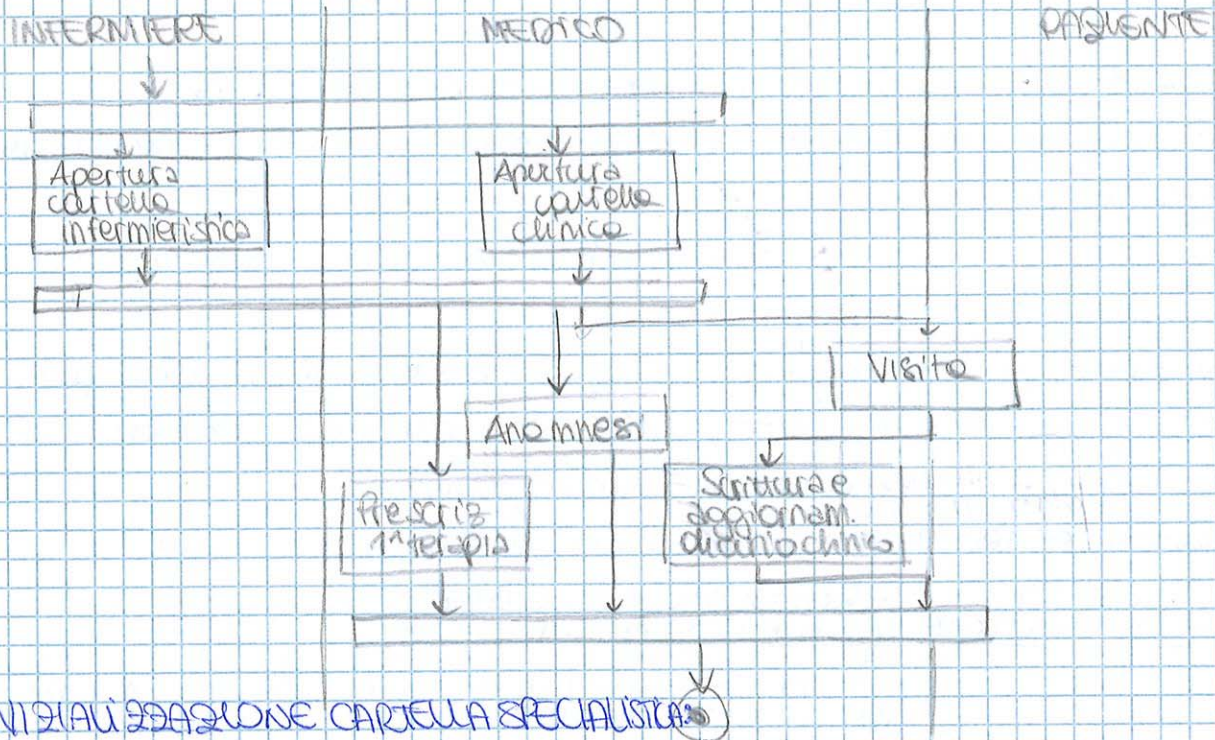 INFERMIERE
MEDICO
PAZIENTE
Apertura
cartella
infermieristica
Apertura
cartella
clinica
Visita
Anamnesi
Prescriz
1ᵃ terapia
Scrittura e
aggiornam.
diario clinico
VIZIALIZZAZIONE CARTELLA SPECIALISTICA: